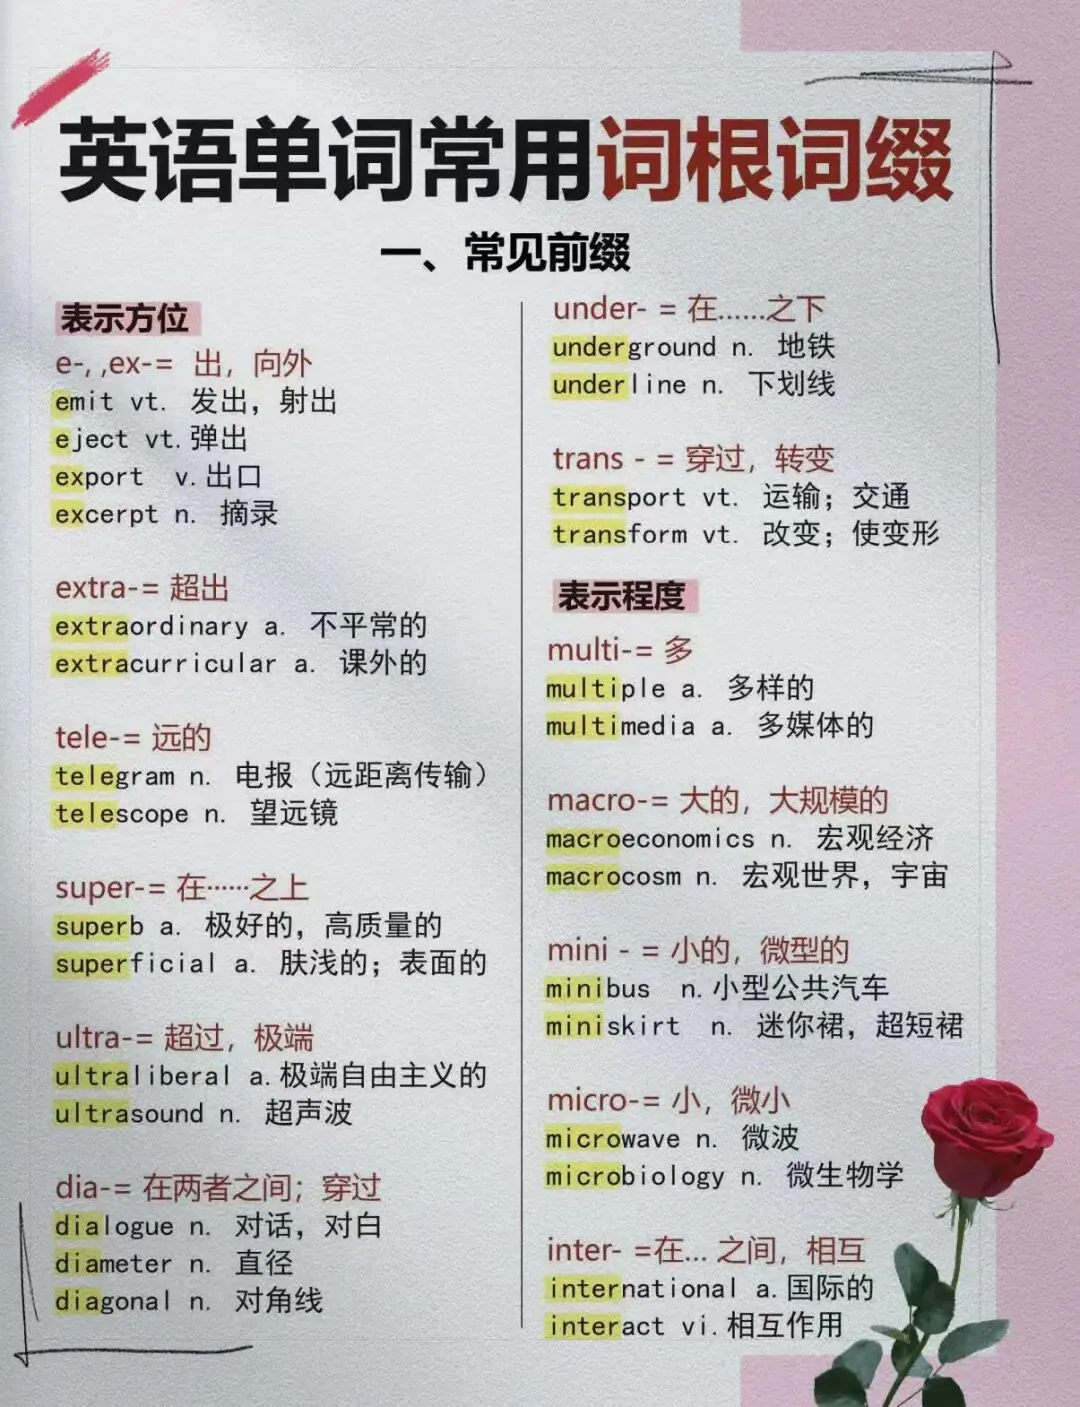 英语单词常用词根词缀
一、常见前缀
表示方位
e-, ,ex-= 出，向外
emit vt. 发出，射出
eject vt.弹出
export v.出口
excerpt n. 摘录
extra-= 超出
extraordinary a. 不平常的
extracurricular a. 课外的
tele-= 远的
telegram n. 电报（远距离传输）
telescope n. 望远镜
super-= 在······之上
superb a. 极好的，高质量的
superficial a. 肤浅的；表面的
ultra-= 超过，极端
ultraliberal a.极端自由主义的
ultrasound n. 超声波
dia-= 在两者之间；穿过
dialogue n. 对话，对白
diameter n. 直径
diagonal n. 对角线
under- = 在......之下
underground n. 地铁
underline n. 下划线
trans - = 穿过，转变
transport vt. 运输；交通
transform vt. 改变；使变形
表示程度
multi-= 多
multiple a. 多样的
multimedia a. 多媒体的
macro-= 大的，大规模的
macroeconomics n. 宏观经济
macrocosm n. 宏观世界，宇宙
mini - = 小的，微型的
minibus n.小型公共汽车
miniskirt n. 迷你裙，超短裙
micro-= 小，微小
microwave n. 微波
microbiology n. 微生物学
inter- =在... 之间，相互
international a.国际的
interact vi.相互作用